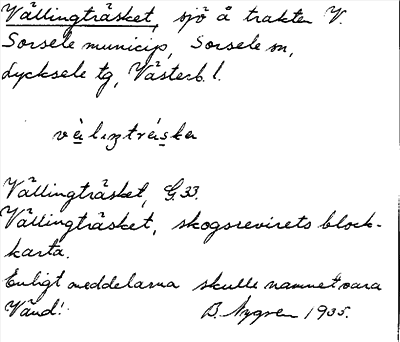 Vällingträsket, sjö å trakten V.
Sorsele municip, Sorsele sn,
Lycksele tg, Västerb. l.
Vällingträsket, G. 33.
Vällingträsket, skogsrevirets block-
karta.
Enligt meddelarna skulle namnet vara
Vänd! B. Nygren 1935.